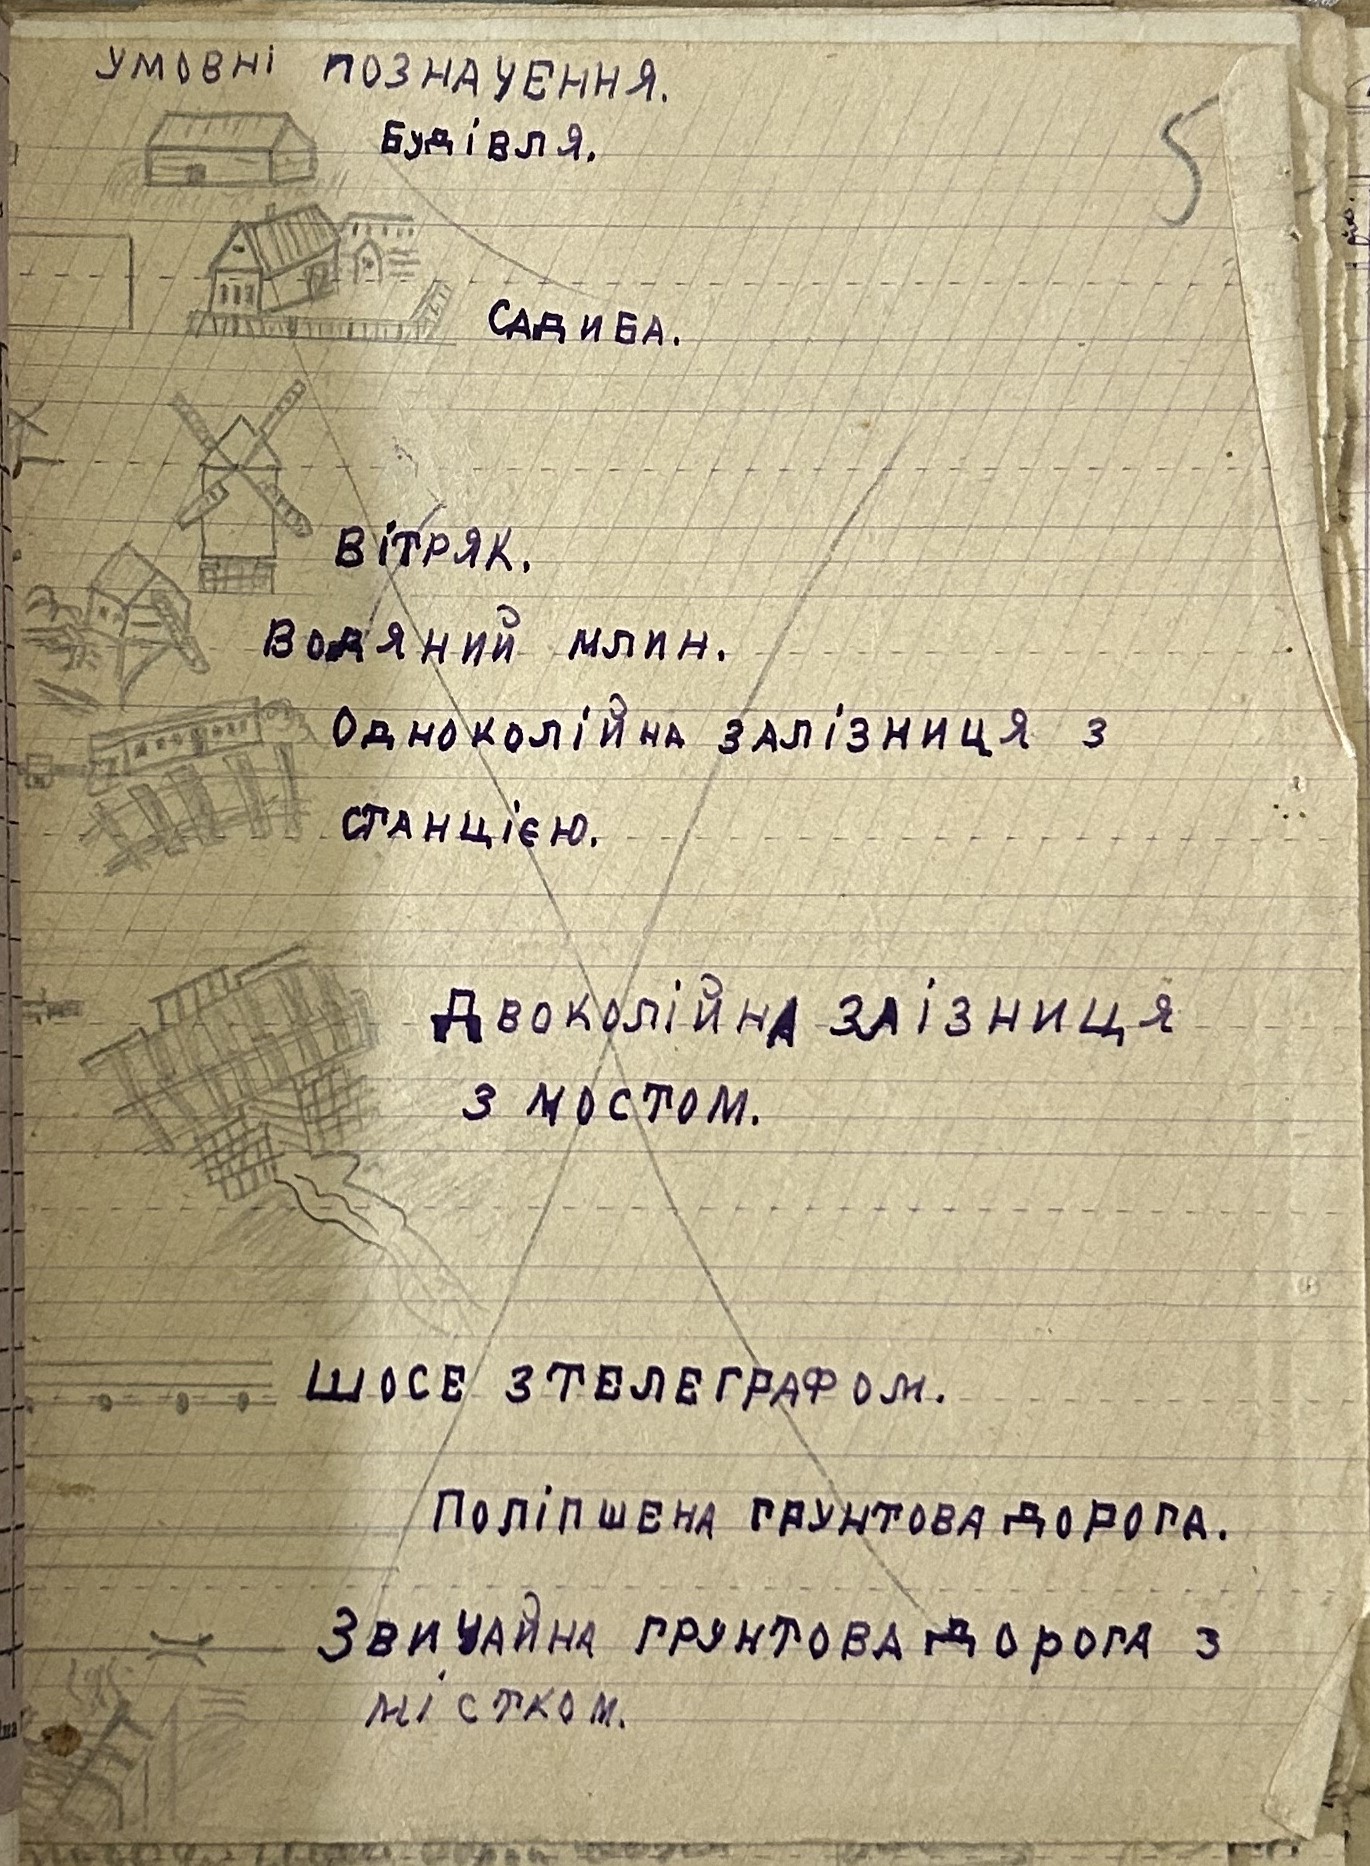 Умовні позначення.
5
Будівля.
Садиба.
Вітряк.
Водяний млин.
Одноколійна залізниця з
станцією.
Двоколійна заізниця
з мостом.
Шосе з телеграфом.
Поліпшена грунтова дорога.
Звичайна грунтова дорога з
містком.